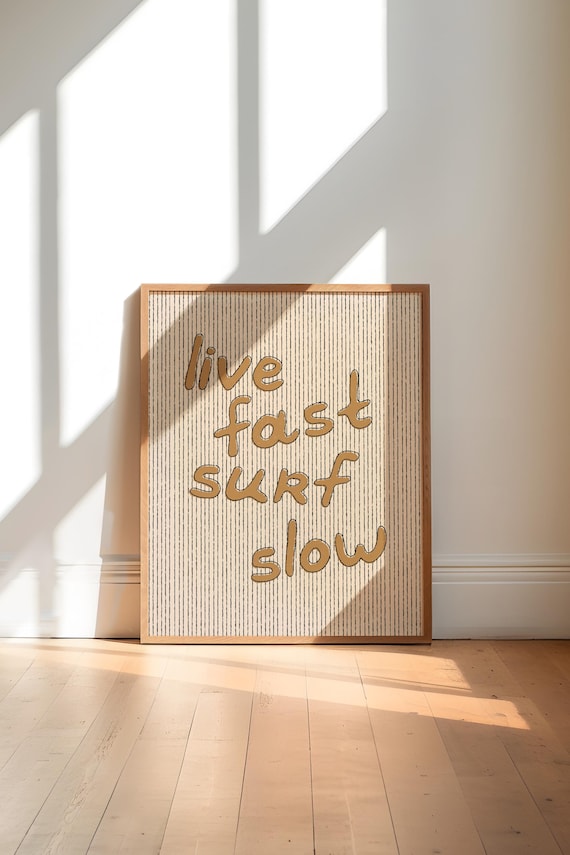 live
fast
surf
slow